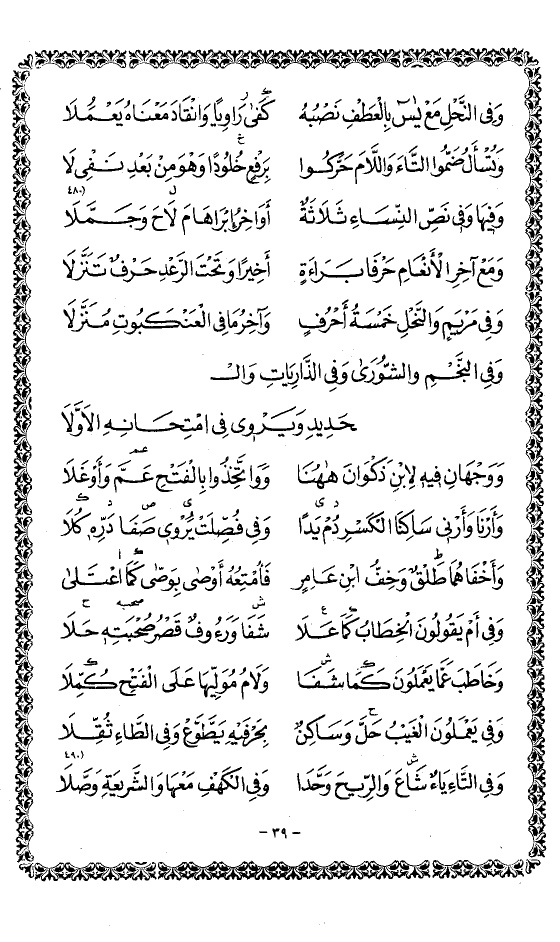 وَفِي النَّحْلِ مَعْ يٰسٓ بِالْعَطْفِ نَصْبُهُ كَفَىٰ رَاوِيًا وَانْقَادَ مَعْنَاهُ يَعْمُلَا
وَتُسْأَلُ ضَمُّوا التَّاءَ وَاللَّامَ حَرَّكُوا بِرَفْعٍ خُلُودًا وَهُوَ مِنْ بَعْدِ نَفْيِ لَا
(٤٨٠)
وَفِيهَا وَفِي نَصِّ النِّسَاءِ ثَلَاثَةٌ أَوَاخِرُ إِبْرَاهَامَ لَاحَ وَجَمَّلَا
وَمَعْ آخِرِ الْأَنْعَامِ حَرْفَا بَرَاءَةٍ أَخِيرًا وَتَحْتَ الرَّعْدِ حَرْفٌ تَنَزَّلَا
وَفِي مَرْيَمٍ وَالنَّحْلِ خَمْسَةُ أَحْرُفٍ وَآخِرُ مَا فِي الْعَنْكَبُوتِ مُنَزَّلَا
وَفِي النَّجْمِ وَالشُّورَىٰ وَفِي الذَّارِيَاتِ وَالْـ
حَدِيدِ وَيَرْوِي فِي امْتِحَانِهِ الْأَوَّلَا
وَوَجْهَانِ فِيهِ لِابْنِ ذَكْوَانَ هٰهُنَا وَوَاتَّخِذُوا بِالْفَتْحِ عَمَّ وَأَوْغَلَا
وَأَرْنَا وَأَرْنِي سَاكِنَا الْكَسْرِ دُمْ يَدًا وَفِي فُصِّلَتْ يُرْوِي صَفَا دَرِّهِ كُلَا
وَأَخْفَاهُمَا طَلْقٌ وَخِفُّ ابْنِ عَامِرٍ فَأُمْتِعُهُ أَوْصَىٰ بِوَصَّىٰ كَمَا اعْتَلَىٰ
وَفِي أَمْ يَقُولُونَ الْخِطَابُ كَمَا عَلَا شَفَا وَرَءُوفٌ قَصْرُ صُحْبَتِهِ حَلَا
وَخَاطَبَ عَمَّا يَعْمَلُونَ كَمَا شَفَا وَلَامُ مُوَلِّيهَا عَلَى الْفَتْحِ كُمِّلَا
وَفِي يَعْمَلُونَ الْغَيْبَ حَلَّ وَسَاكِنٌ بِحَرْفَيْهِ يَطَّوَّعْ وَفِي الطَّاءِ ثُقِّلَا
(٤٩٠)
وَفِي التَّاءِ يَاءٌ شَاعَ وَالرِّيحَ وَحَّدَا وَفِي الْكَهْفِ مَعْهَا وَالشَّرِيعَةِ وَصَّلَا
- ٣٩ -